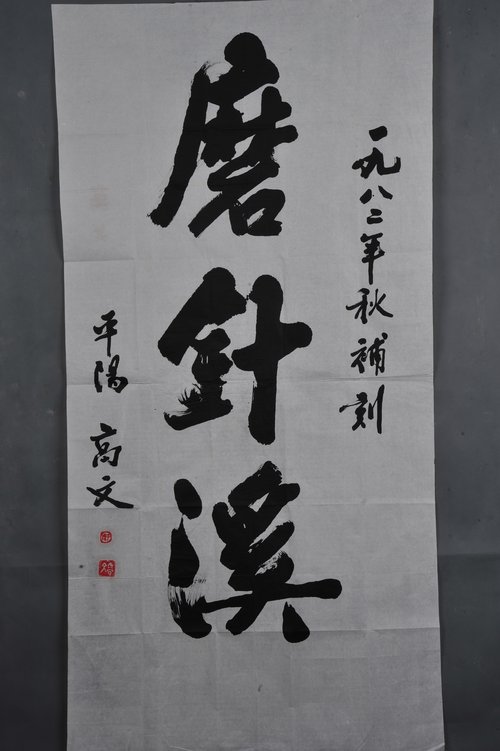 一九八二年秋補刻
磨針溪
平陽 高文